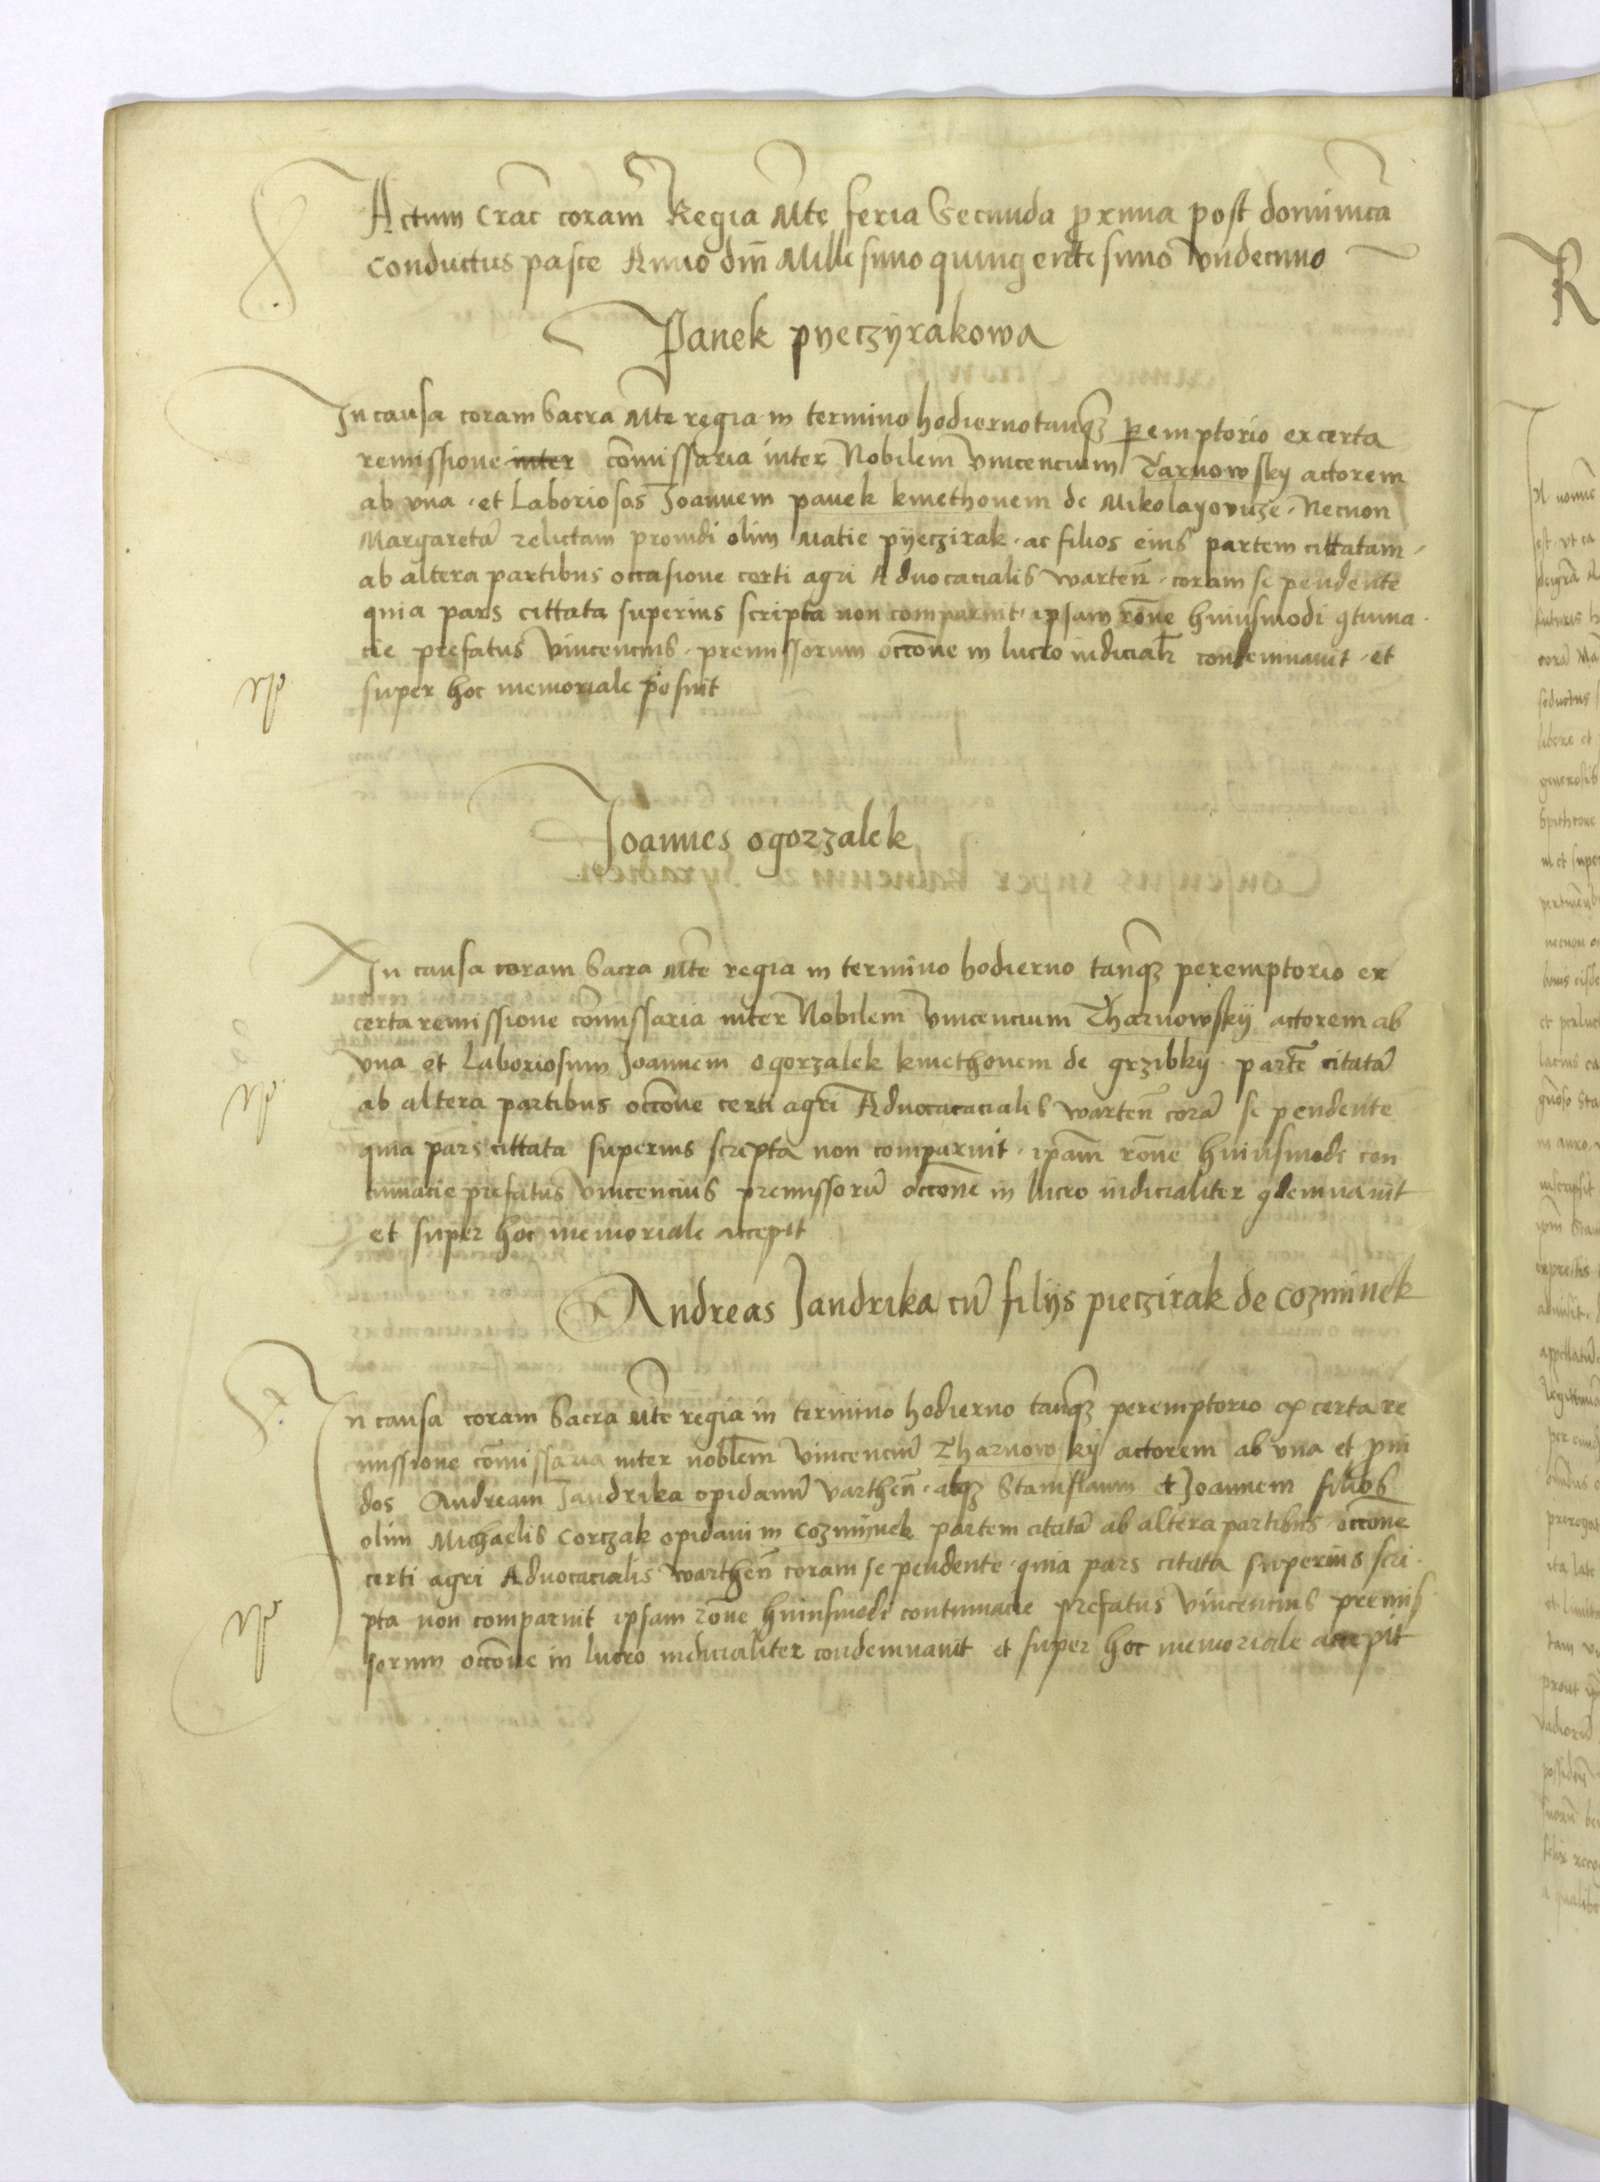 Actum Crac coram Regia Mte feria Secunda proxima post dominica
Conductus pasce Anno dni Millesimo quingentesimo vndecimo
Panek pyeczyrakowa
In causa coram Sacra Mte regia in termino hodierno tanqz peremptorio ex certa
remissione inter comissaria inter Nobilem Vincencium Tarnowsky actorem
ab vna et Laboriosos Joannem panek kmethonem de Mikolayovicze Necnon
Margareta relictam providi olim Matie pyeczirak ac filios eius partem cittatam
ab altera partibus occasione certi agri Aduocacialis warten coram se pendente
quia pars cittata superius scripta non comparuit ipsam rone huiusmodi gtuma
cie prefatus Vincencius premissorum occone in lucro iudicialr condemnauit et
super hoc memoriale posuit
Joannes ogorzalek
In causa coram Sacra Mte regia in termino hodierno tanqz peremptorio ex
certa remissione comissaria inter Nobilem Vincencium Tharnowskij actorem ab
vna et Laboriosum Joannem ogorzalek kmethonem de grzibky parte citata
ab altera partibus occone certi agri Aduocacacialis warten cora se pendente
quia pars cittata superius scripta non comparuit ipam rone huiusmodi con
tumacie prefatus Vincencius premissoru occone in lucro iudicialiter gdemnauit
et super hoc memoriale accepit
Andreas Jandrika cu filijs pieczirak de cozminek
In causa coram Sacra Mte regia in termino hodierno tanqz peremptorio ex certa re
missione comissaria inter noblem Vincenciu Tharnowskij actorem ab vna et proui
dos Andream Jandrika opidanu varthen atqz Stanislaum et Joannem filios
olim Michaelis Corczak opidani in Cozminek partem citata ab altera partibus occone
certi agri Aduocacialis warthen coram se pendente quia pars citata superius scri
pta non comparuit ipsam rone huiusmodi contumacie prefatus Vincencius premis
sorum occone in lucro iudicialiter condemnauit et super hoc memoriale accepit